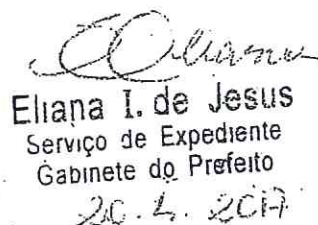 Eliana I. de Jesus
Serviço de Expediente
Gabinete do Prefeito
20.4.2017